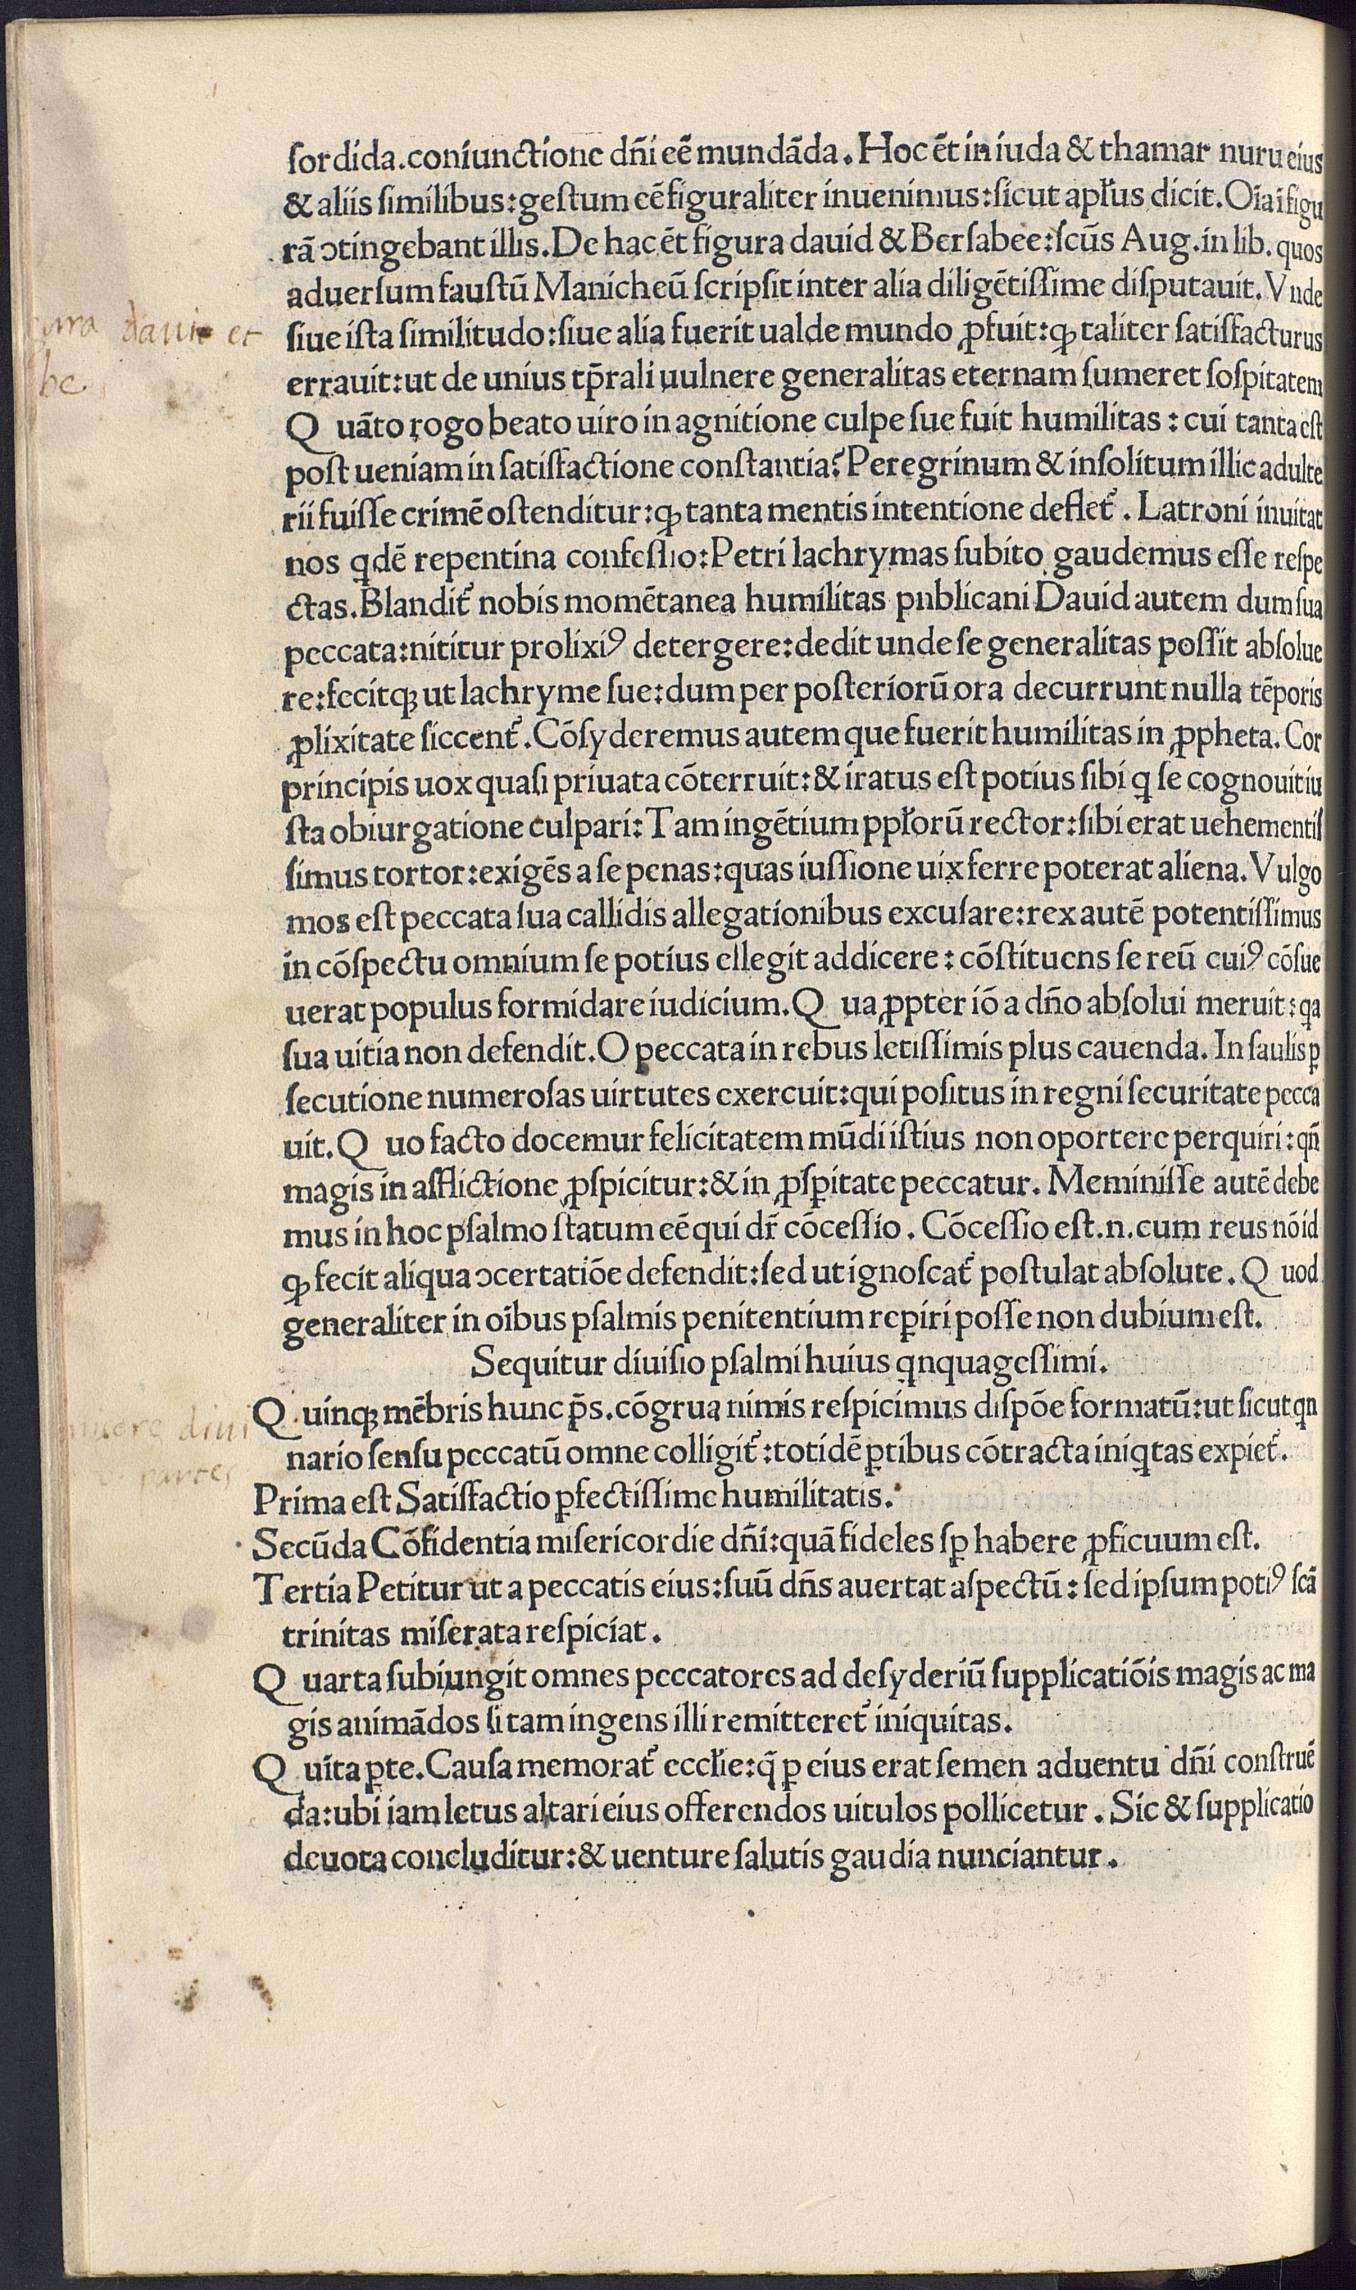 sordida.coniunctione dn̄i eē mundāda. Hoc ēt in iuda & thamar nuru eius
& aliis similibus:gestum eē figuraliter inuenimus:sicut apłus dicit. Oīa ī figu
rā ɔtingebant illis. De hac ēt figura dauid & Bersabee:scūs Aug. in lib. quos
aduersum faustū Manicheū scripsit inter alia diligētissime disputauit. Vnde
siue ista similitudo:siue alia fuerit ualde mundo ꝓfuit:ꝙ taliter satisfacturus
errauit:ut de unius tp̄rali uulnere generalitas eternam sumeret sospitatem
Quāto rogo beato uiro in agnitione culpe sue fuit humilitas: cui tanta est
post ueniam in satisfactione constantia? Peregrinum & insolitum illic adulte
rii fuisse crimē ostenditur:ꝙ tanta mentis intentione defletᷣ. Latroni inuitat
nos qdē repentina confessio:Petri lachrymas subito gaudemus esse respe
ctas. Blanditᷣ nobis momētanea humilitas pnblicani Dauid autem dum sua
peccata:nititur prolixiꝰ detergere:dedit unde se generalitas possit absolue
re:fecitqꝫ ut lachryme sue:dum per posteriorū ora decurrunt nulla tēporis
ꝓlixitate siccentᷣ. Cōsyderemus autem que fuerit humilitas in ꝓpheta. Cor
principis uox quasi priuata cōterruit:& iratus est potius sibi q se cognouit iu
sta obiurgatione culpari: Tam ingētium ppłorū rector:sibi erat uehementis
simus tortor:exigēs a se penas:quas iussione uix ferre poterat aliena. Vulgo
mos est peccata sua callidis allegationibus excusare:rex autē potentissimus
in cōspectu omnium se potius ellegit addicere: cōstituens se reū cuiꝰ cōsue
uerat populus formidare iudicium. Qua ꝓpter iō a dn̄o absolui meruit: qa
sua uitia non defendit. O peccata in rebus letissimis plus cauenda. In saulis ꝑ
secutione numerosas uirtutes exercuit:qui positus in regni securitate pecca
uit. Quo facto docemur felicitatem mūdi istius non oportere perquiri: qn̄
magis in afflictione ꝓspicitur:& in ꝓsꝑitate peccatur. Meminisse autē debe
mus in hoc psalmo statum eē qui dr̄ cōcessio. Cōcessio est.n.cum reus nō id
ꝙ fecit aliqua ɔcertatiōe defendit:sed ut ignoscatᷣ postulat absolute. Quod
generaliter in oībus psalmis penitentium reꝑiri posse non dubium est.
Sequitur diuisio psalmi huius qnquagessimi.
Quinqꝫ mēbris hunc p̄s. cōgrua nimis respicimus dispōe formatū:ut sicut qn
nario sensu peccatū omne colligitᷣ:totidē ꝑtibus cōtracta iniqtas expietᷣ.
Prima est Satisfactio ꝑfectissime humilitatis.
Secūda Cōfidentia misericordie dn̄i:quā fideles sꝑ habere ꝓficuum est.
Tertia Petitur ut a peccatis eius:suū dn̄s auertat aspectū: sed ipsum potiꝰ scā
trinitas miserata respiciat.
Quarta subiungit omnes peccatores ad desyderiū supplicatiōis magis ac ma
gis animādos si tam ingens illi remitteretᷣ iniquitas.
Quīta ꝑte. Causa memoratᷣ eccłie:q̄ ꝑ eius erat semen aduentu dn̄i construē
da:ubi iam letus altari eius offerendos uitulos pollicetur. Sic & supplicatio
deuota concluditur:& uenture salutis gaudia nunciantur.
ura dauid et
be
diui
partes